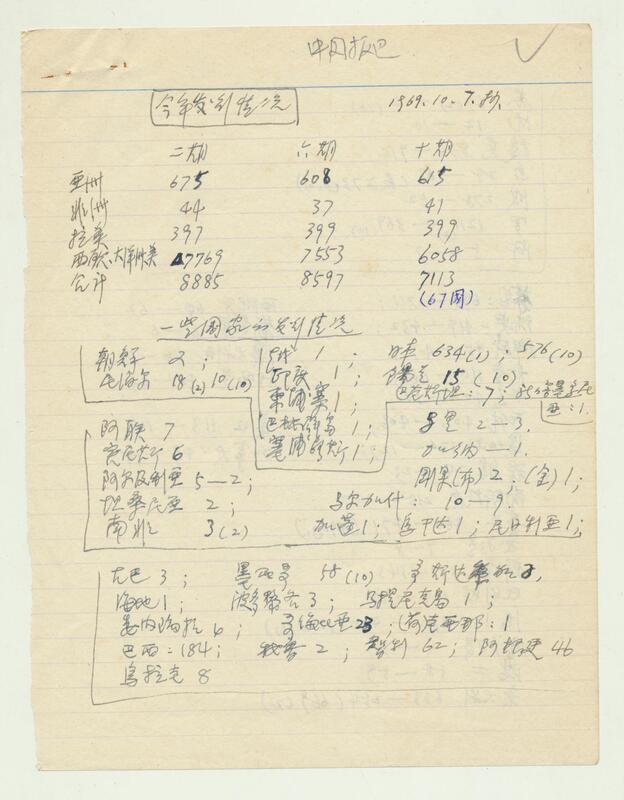 中国报巴
今年发行情况 1969.10.7.抄
二期 六期 十期
亚洲 675 608 615
非洲 44 37 41
拉美 397 399 399
西欧、大洋洲、美 7769 7553 6058
合计 8885 8597 7113
(67国)
一些国家的发行情况
朝鲜 2; 1; 日本 634(1); 576(10)
尼泊尔 18(2) 10(10) 印度 1; 锡兰 15 (10)
柬埔寨 1; 巴基斯坦: 7;
亚: 1.
阿联 7 1; 2—3.
6 塞浦路斯 1; 加纳—1.
阿尔及利亚 5—2; 刚果(布) 2; (金) 1;
坦桑尼亚 2; 马尔加什: 10—9.
南非 3(2) 加蓬 1; 乌干达 1; 尼日利亚 1;
古巴 3; 墨西哥 58 (10) 哥斯达黎加
海地 1; 波多黎各 3; 马提尼克岛 1;
委内瑞拉 6; 哥伦比亚 23; 圭亚那: 1
巴西: 184; 2; 智利 62; 阿根廷 46
乌拉圭 8